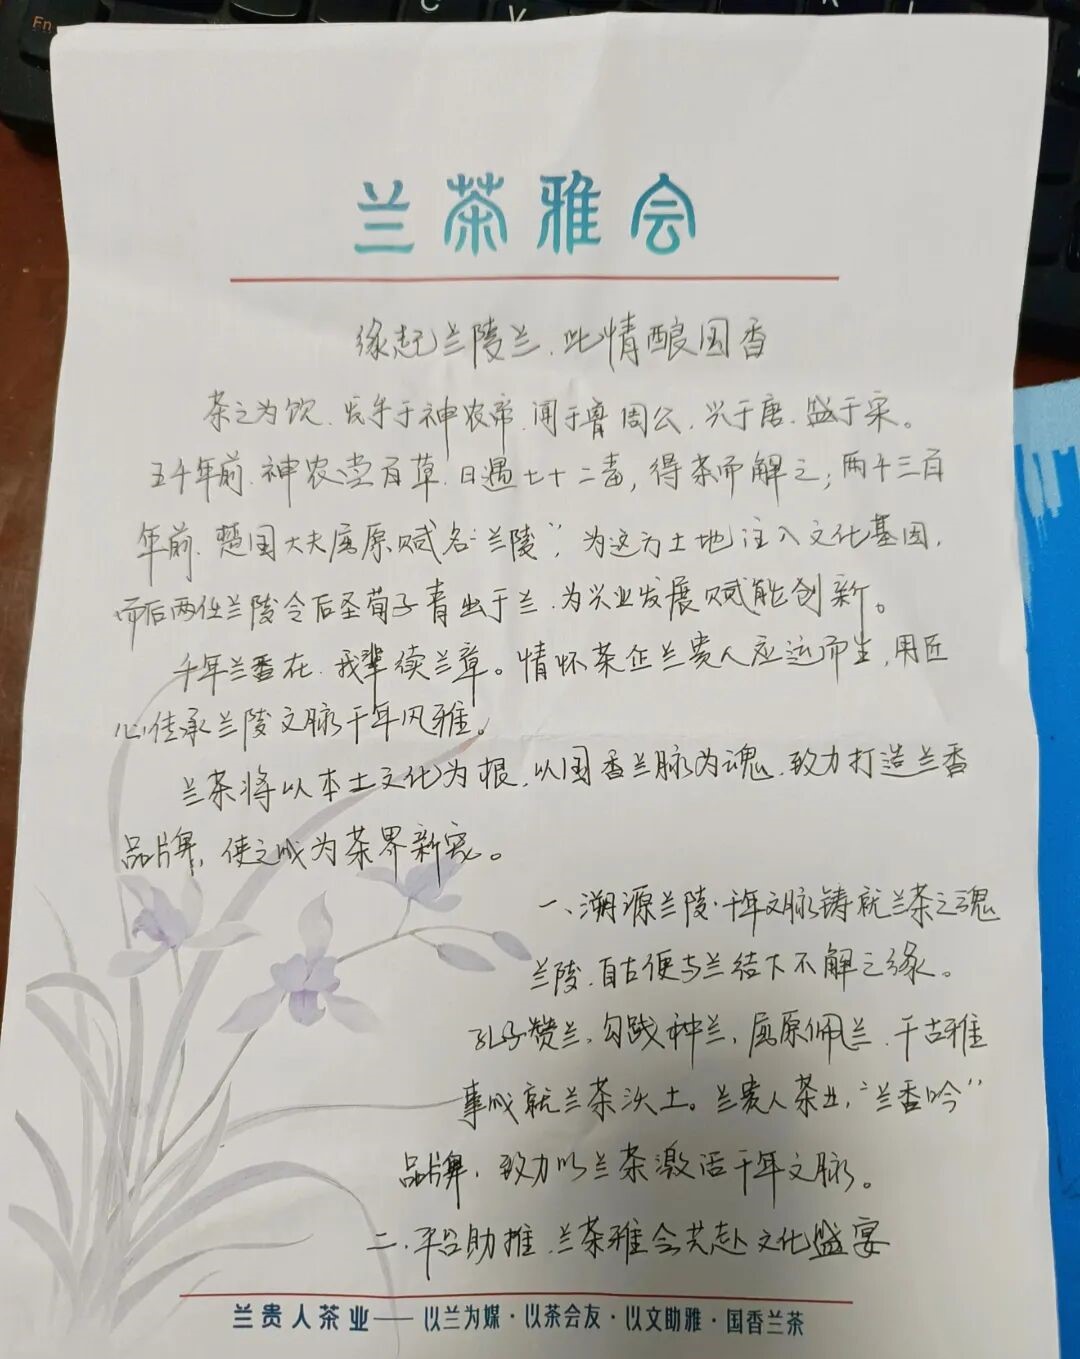 兰茶雅会
缘起兰陵兰、此情酿国香
茶之为饮、发乎于神农帝、闻于鲁周公、兴于唐、盛于宋。
五千年前、神农尝百草、日遇七十二毒，得茶而解之；两千三百
年前、楚国大夫屈原赋名“兰陵”，为这方土地注入文化基因，
而后两任兰陵令后圣荀子青出于兰、为兴业发展赋能创新。
千年兰香在、我辈续兰章。情怀茶企兰贵人应运而生，用匠
心传承兰陵文脉千年风雅。
兰茶将以本土文化为根、以国香兰脉为魂、致力打造兰香
品牌，使之成为茶界新宠。
一、溯源兰陵·千年文脉铸就兰茶之魂
兰陵、自古便与兰结下不解之缘。
孔子赞兰、勾践种兰、屈原佩兰、千古雅
事成就兰茶沃土。兰贵人茶业，“兰香吟”
品牌，致力以兰茶激活千年文脉。
二、平台助推、兰茶雅会共赴文化盛宴
兰贵人茶业——以兰为媒·以茶会友·以文助雅·国香兰茶
Fn
C
V